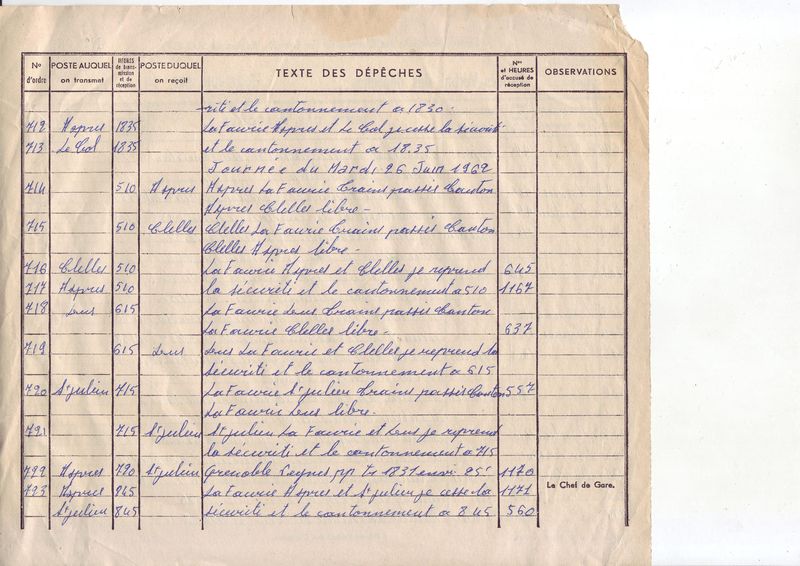 Nº d'ordre POSTE AUQUEL on transmet HEURES de transmission et de réception POSTE DUQUEL on reçoit TEXTE DES DÉPÊCHES Nos et HEURES d'accusé de réception OBSERVATIONS
rité et le cantonnement a 1830.
712 Aspres 1835 La Faurie Aspres et Le Col je cesse la sécurité
713 Le Col 1835 et le cantonnement a 18.35
Journée du Mardi 26 Juin 1962
714 510 Aspres Aspres La Faurie Trains passés Canton
Aspres Clelles libre -
715 510 Clelles Clelles La Faurie Trains passés Canton
Clelles Aspres libre -
716 Clelles 510 La Faurie Aspres et Clelles je reprend 645
717 Aspres 510 la sécurité et le cantonnement a 510 1167
718 Lus 615 La Faurie Lus trains passés Canton
La Faurie Clelles libre - 637
719 615 Lus Lus La Faurie et Clelles je reprend la
sécurité et le cantonnement a 615
720 St Julien 715 La Faurie St Julien trains passés Canton 557
La Faurie Lus libre.
721 715 St Julien St Julien La Faurie et Lus je reprend
la sécurité et le cantonnement a 715
722 Aspres 720 St Julien Grenoble Veynes pp tr 1831 25' 1170
723 Aspres 845 La Faurie Aspres et St Julien je cesse la 1171 Le Chef de Gare.
St Julien 845 sécurité et le cantonnement a 845 560